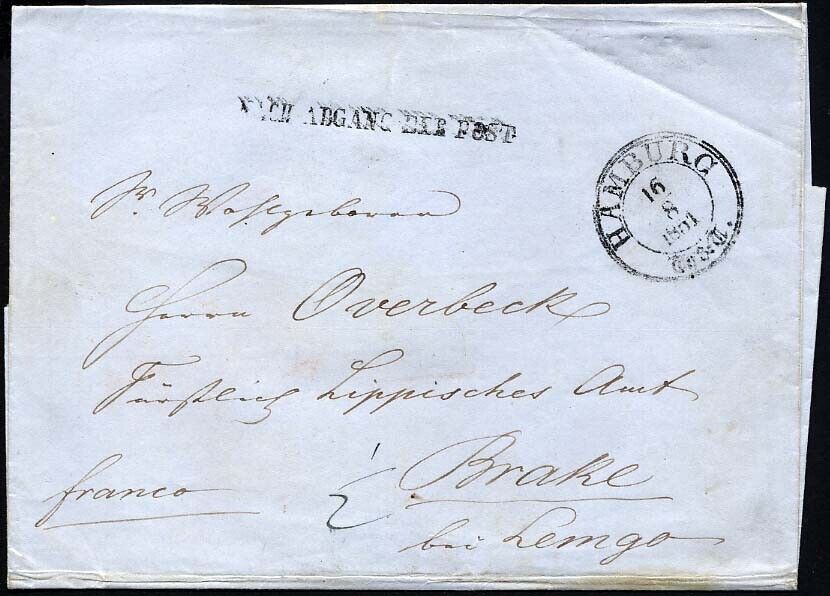 NACH ABGANG DER POST
HAMBURG
16
8
1851
Sr. Wohlgeboren
Herrn Overbeck
Fürstlich Lippisches Amt
Brake
franco
bei Lemgo